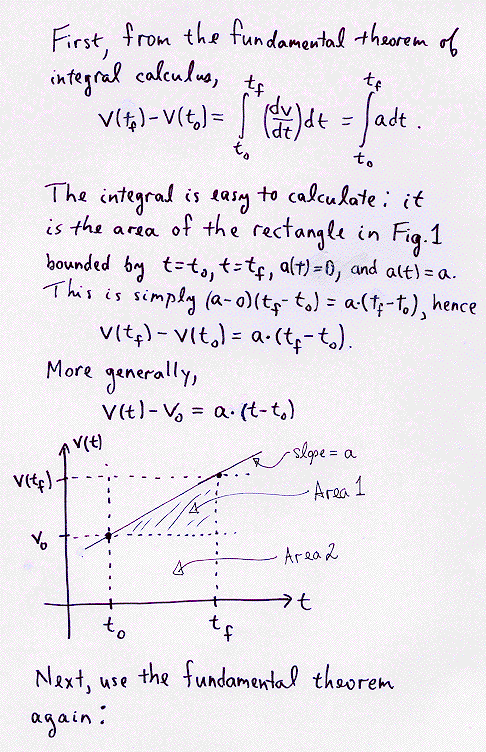 First, from the fundamental theorem of
integral calculus,
v(t_f) - v(t_0) = ∫_{t_0}^{t_f} (dv/dt) dt = ∫_{t_0}^{t_f} a dt .
The integral is easy to calculate: it
is the area of the rectangle in Fig. 1
bounded by t=t_0, t=t_f, a(t)=0, and a(t)=a.
This is simply (a-0)(t_f - t_0) = a·(t_f - t_0), hence
v(t_f) - v(t_0) = a·(t_f - t_0).
More generally,
v(t) - v_0 = a·(t - t_0)
v(t)
slope = a
v(t_f)
Area 1
v_0
Area 2
t
t_0
t_f
Next, use the fundamental theorem
again: